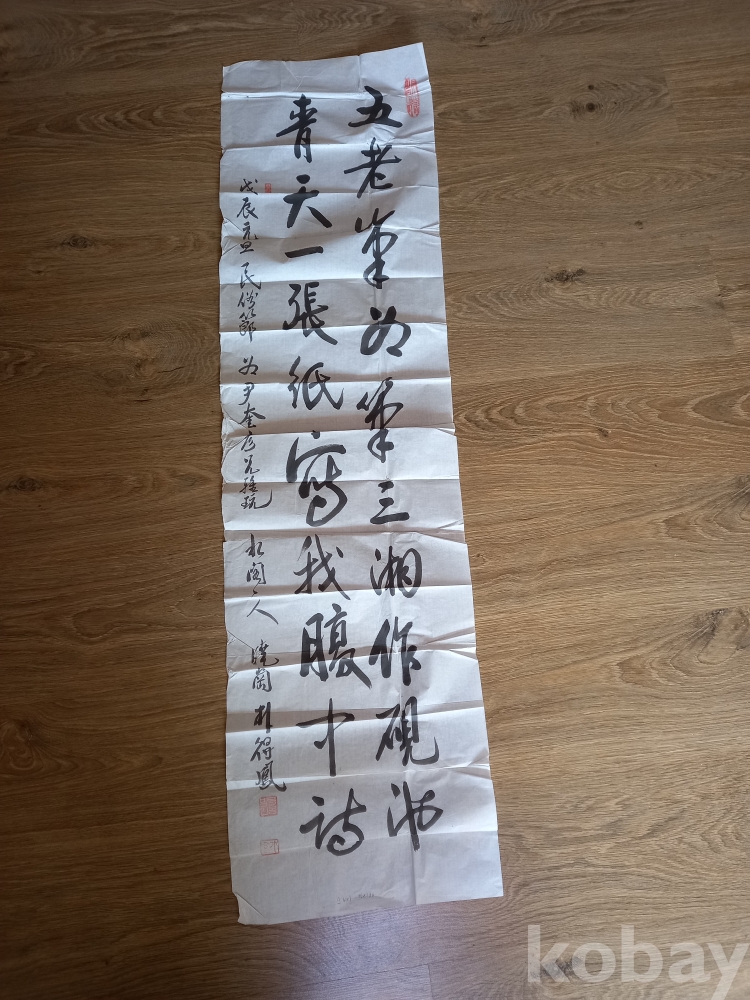 五老峯為筆三湘作硯池
青天一張紙寫我腹中詩
戊辰元旦民俗節 為尹奎彦兄 玩 閣人 蘭 朴得鳳
kobay